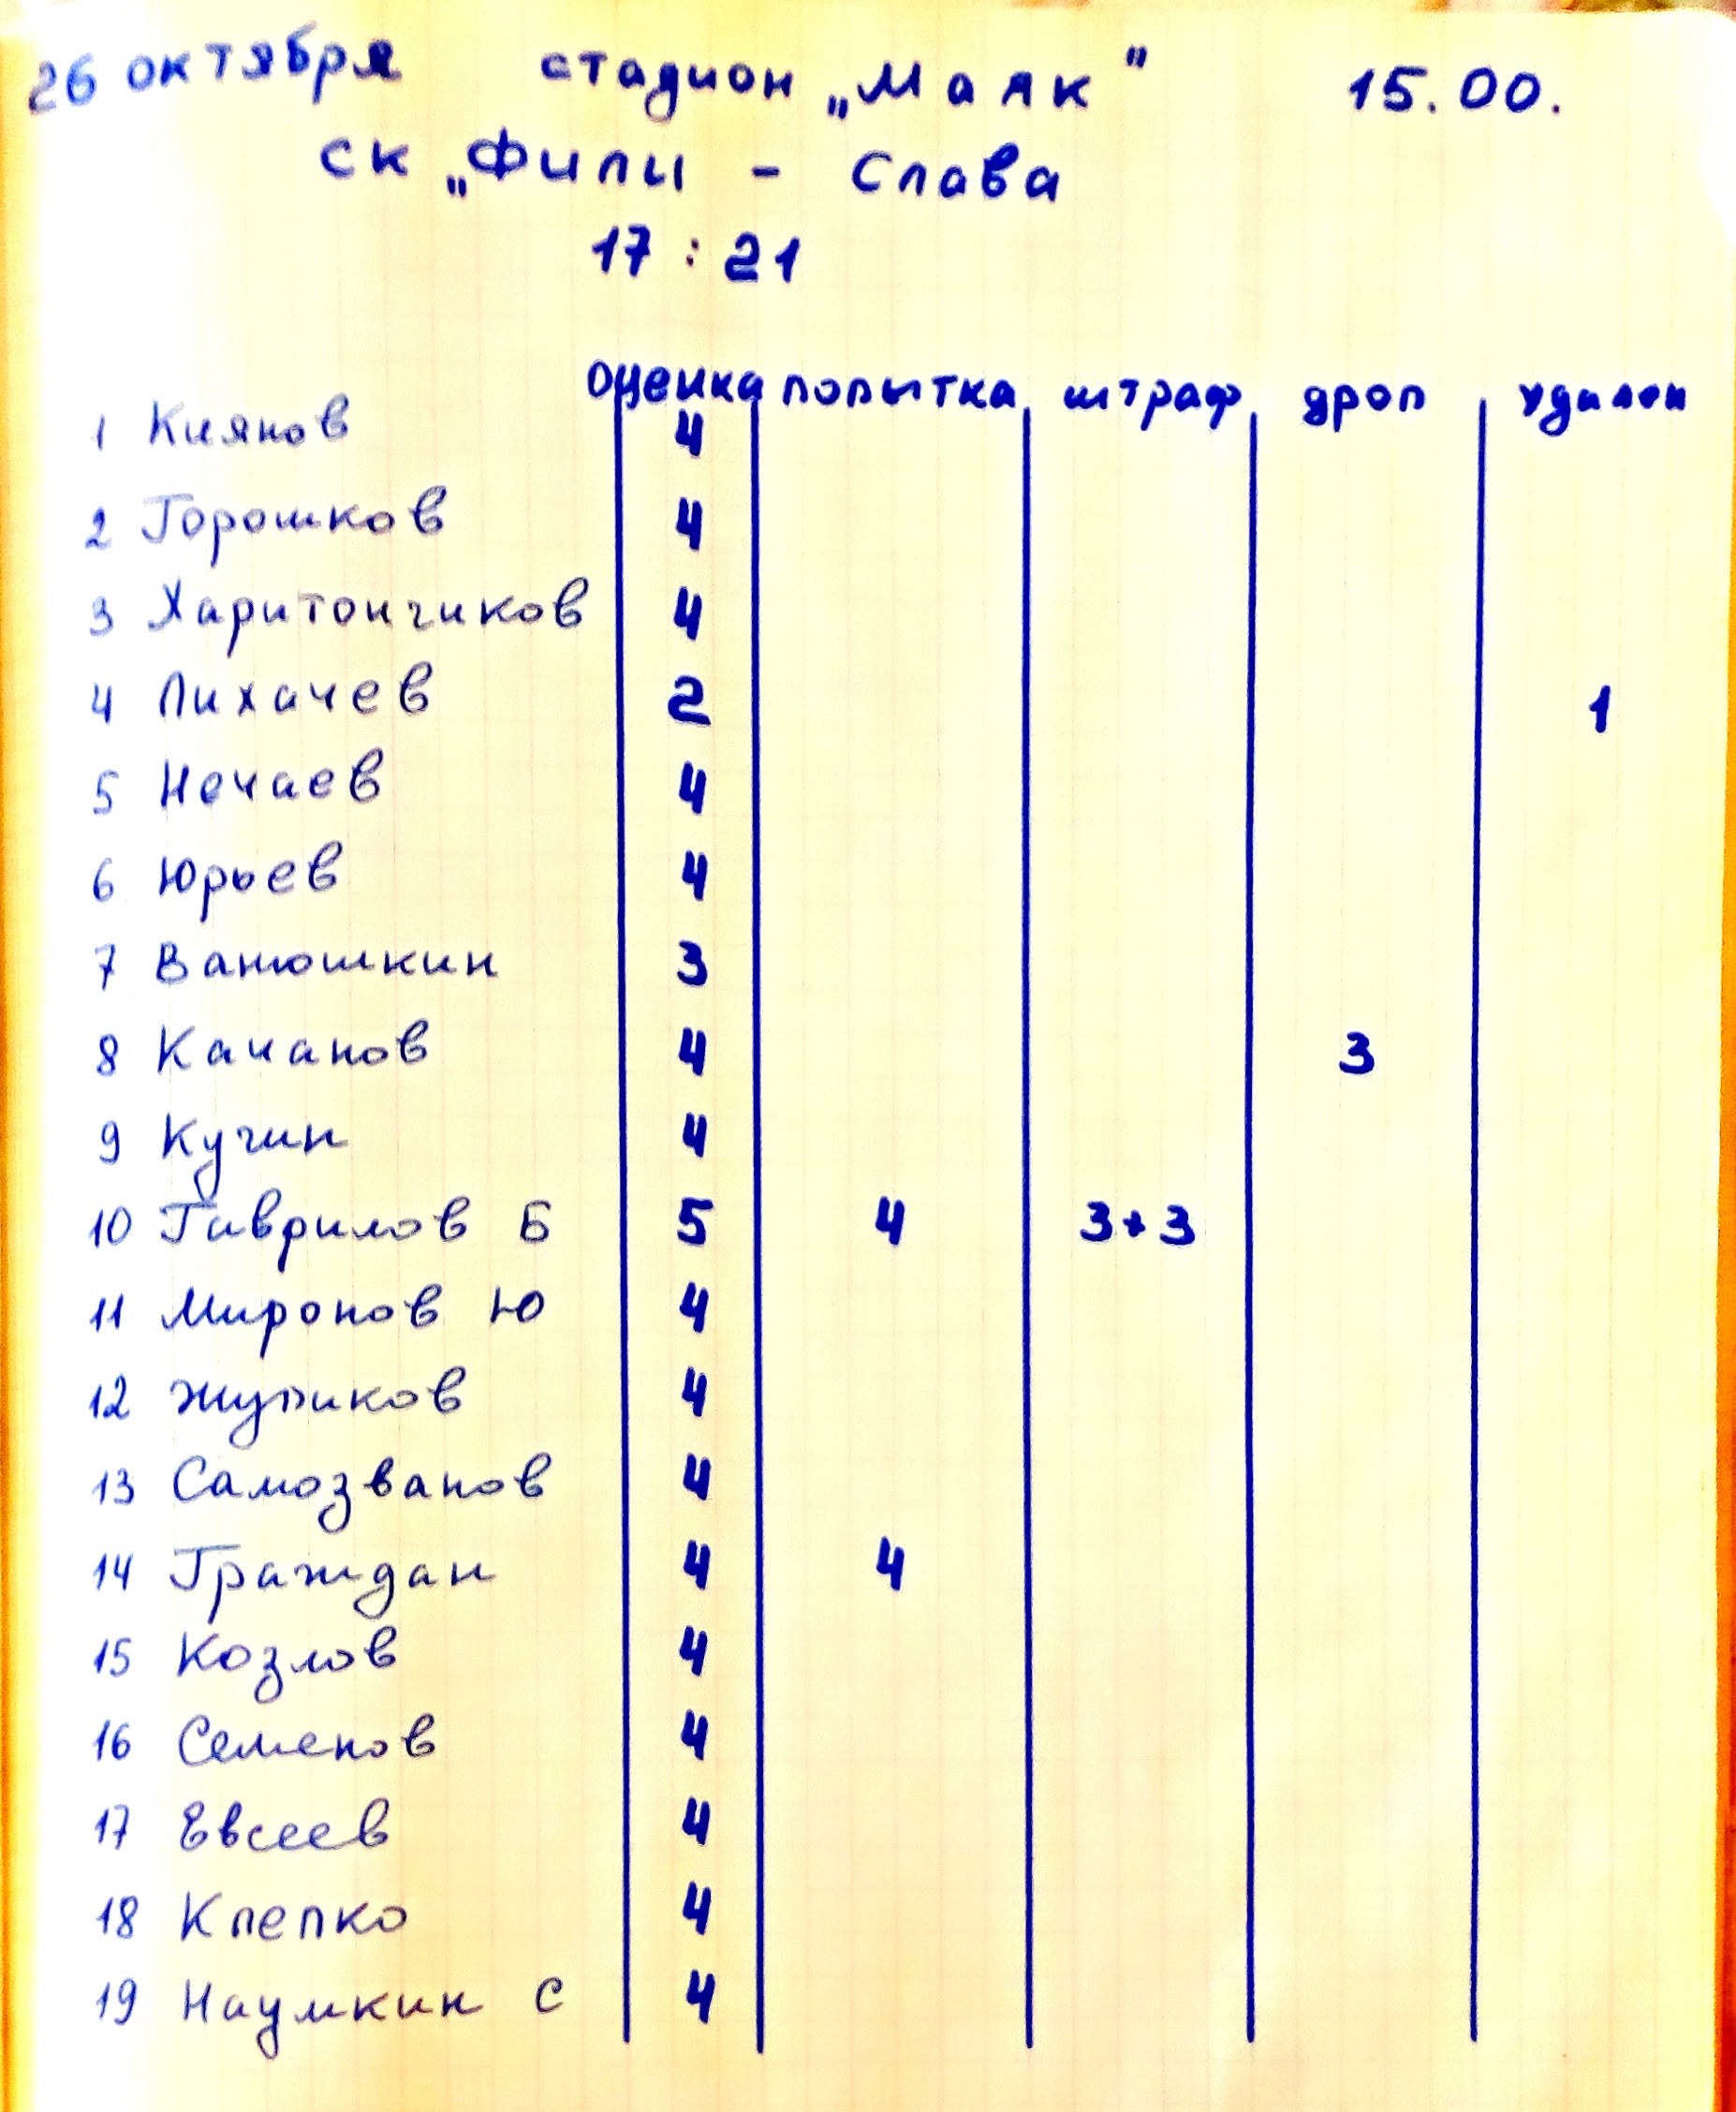 26 октября стадион „Маяк" 15.00.
СК „Фили - Слава
17 : 21
оценка попытка штраф дроп удален
1 Киянов 4
2 Горошков 4
3 Харитончиков 4
4 Лихачев 2 1
5 Нечаев 4
6 Юрьев 4
7 Ванюшкин 3
8 Качанов 4 3
9 Кучин 4
10 Гаврилов Б 5 4 3+3
11 Миронов Ю 4
12 Жупиков 4
13 Самозванов 4
14 Граждан 4 4
15 Козлов 4
16 Семенов 4
17 Евсеев 4
18 Клепко 4
19 Наумкин С 4